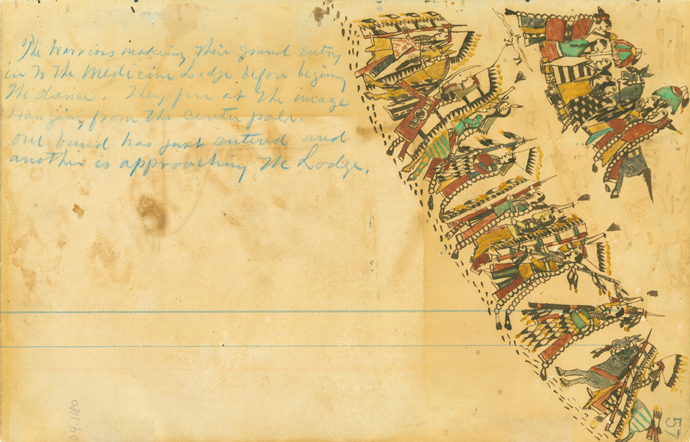 The Warriors making their grand entry
in to the Medicine Lodge before begining
the dance. They fire at the image
hanging from the center pole.
one band has just entered and
another is approaching the Lodge.
57
04.180